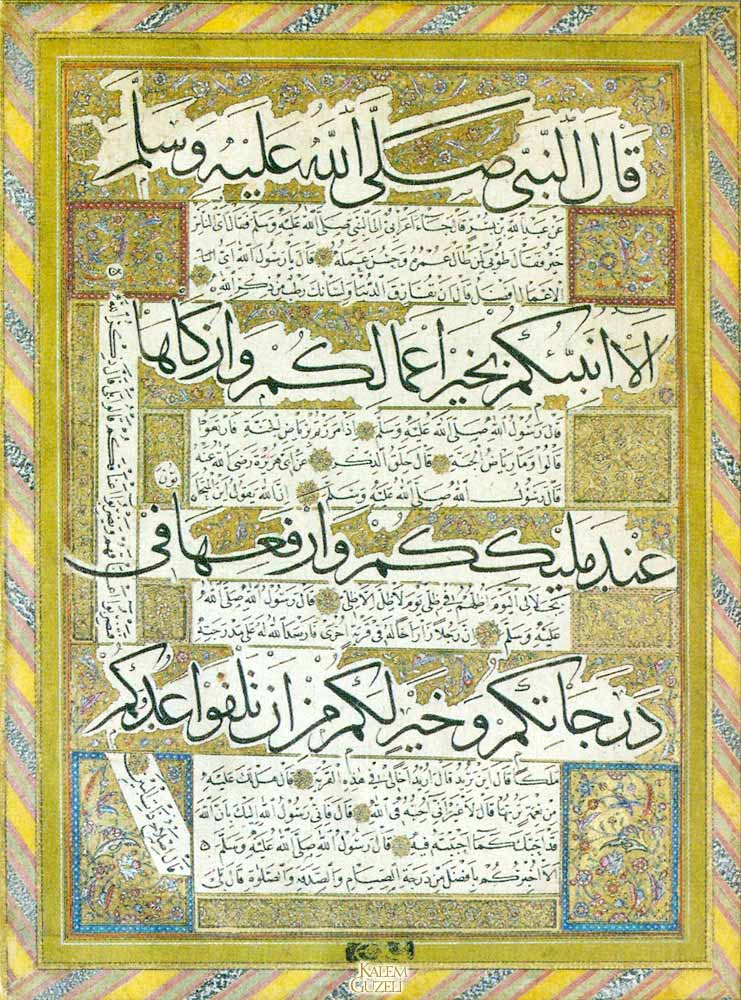 قال النبي صلى الله عليه وسلم
عن عبد الله بن بسر قال جاء اعرابي الى النبي صلى الله عليه وسلم فقال اي الناس
خير فقال طوبى لمن طال عمره وحسن عمله قال يا رسول الله اي
الاعمال افضل قال ان تفارق الدنيا ولسانك رطب من ذكر الله
الا انبئكم بخير اعمالكم وازكاها
قال رسول الله صلى الله عليه وسلم اذا مررتم برياض الجنة فارتعوا
قالوا وما رياض الجنة قال حلق الذكر عن ابي هريرة رضى الله عنه
قال رسول الله صلى الله عليه وسلم ان الله يقول اين المتحا
بون
عند مليككم وارفعها في
بجلالي اليوم اظلهم في ظلي يوم لا ظل الا ظلي قال رسول الله صلى الله
عليه وسلم ان رجلا زار اخا له في قرية اخرى فارصد الله له على مدرجته
درجاتكم وخير لكم من ان تلقوا عدوكم
ملكا قال اين تريد قال اريد اخا لي في هذه القرية قال هل لك عليه
من نعمة تربها قال لا غير اني احببته في الله قال فاني رسول الله اليك بان الله
قد احبك كما احببته فيه قال رسول الله صلى الله عليه وسلم ٥
الا اخبركم بافضل من درجة الصيام والصدقة والصلوة قال بلى
قال اصلاح ذات البين
KALEM
GÜZELİ